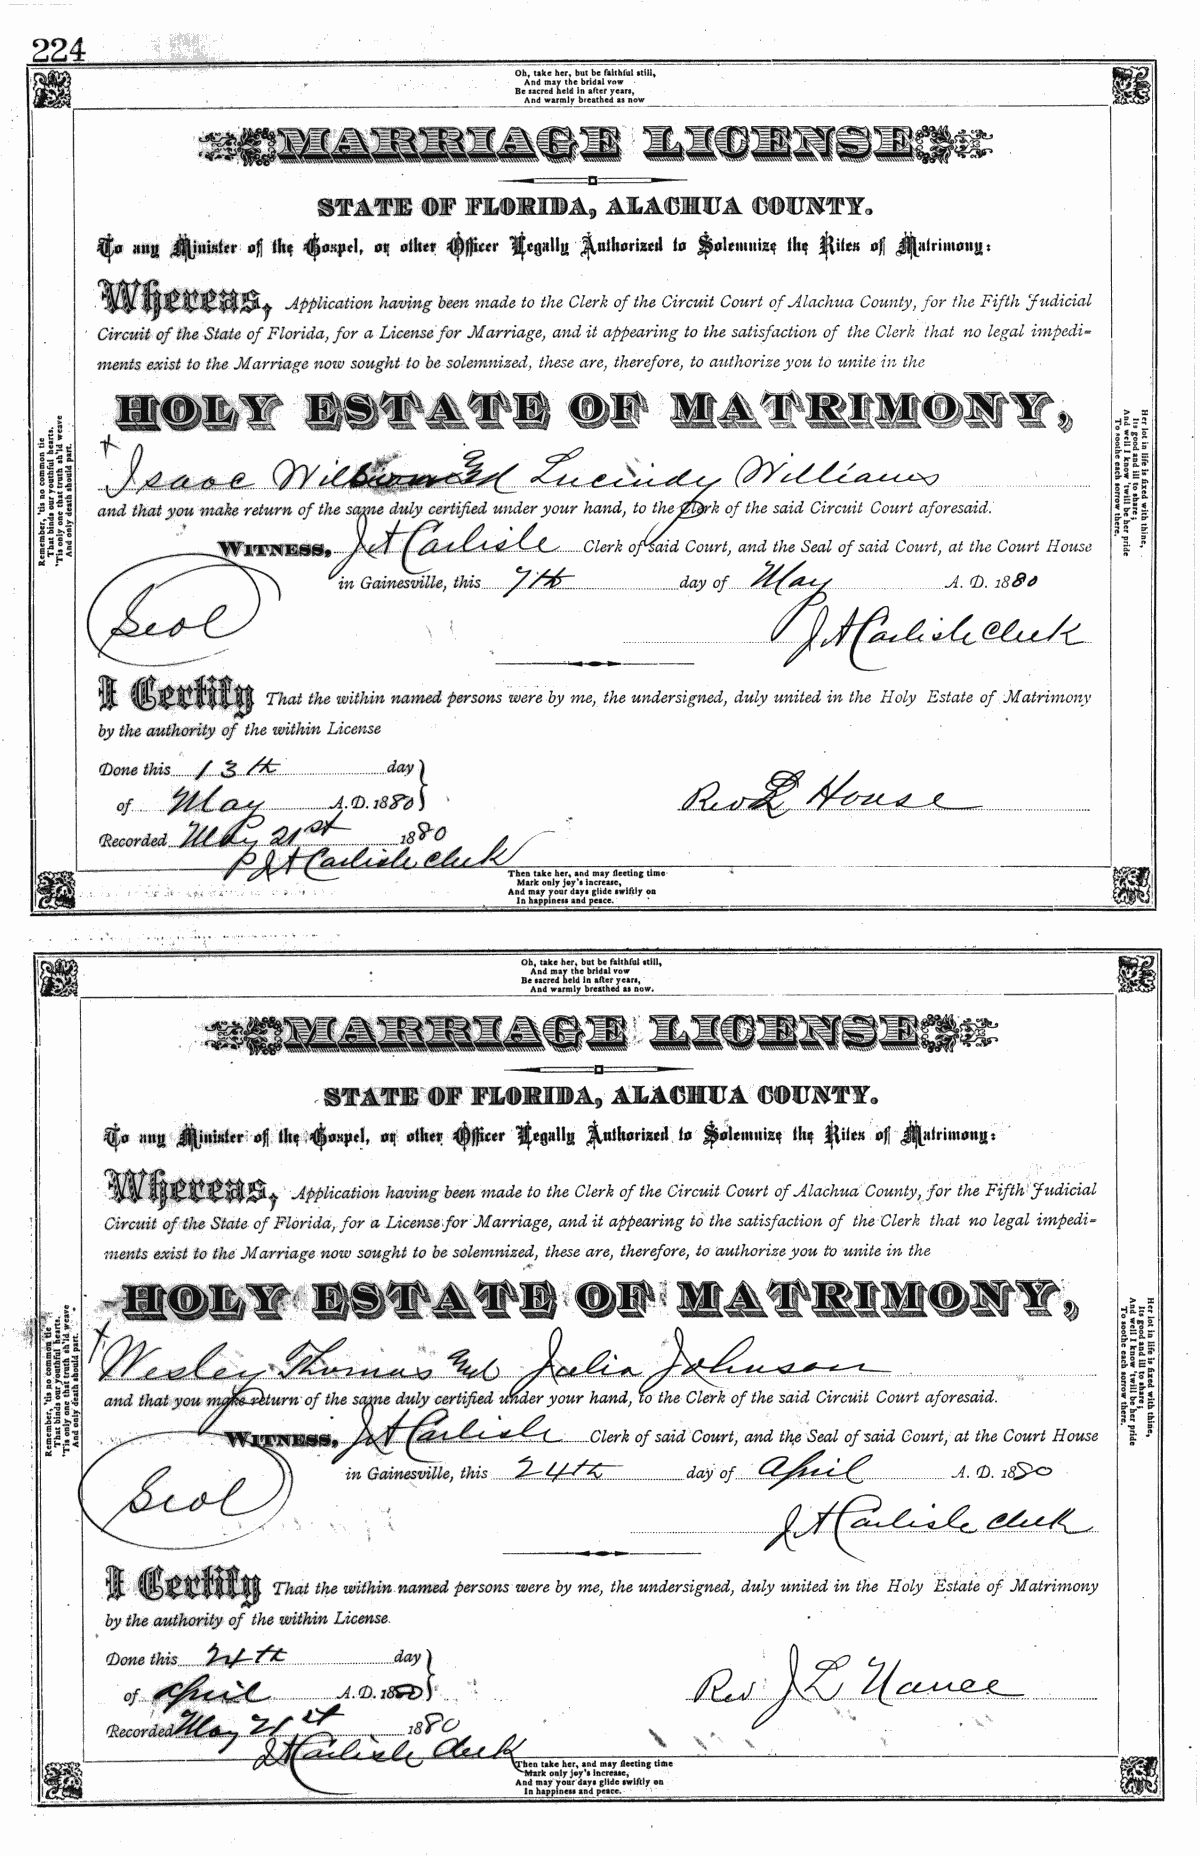 224
Oh, take her, but be faithful still,
And may the bridal vow
Be sacred held in after years,
And warmly breathed as now
MARRIAGE LICENSE
STATE OF FLORIDA, ALACHUA COUNTY.
To any Minister of the Gospel, or other Officer Legally Authorized to Solemnize the Rites of Matrimony:
Whereas, Application having been made to the Clerk of the Circuit Court of Alachua County, for the Fifth Judicial
Circuit of the State of Florida, for a License for Marriage, and it appearing to the satisfaction of the Clerk that no legal impedi-
ments exist to the Marriage now sought to be solemnized, these are, therefore, to authorize you to unite in the
HOLY ESTATE OF MATRIMONY,
Isaac and Lucindy Williams
and that you make return of the same duly certified under your hand, to the Clerk of the said Circuit Court aforesaid.
WITNESS, J A Carlisle Clerk of said Court, and the Seal of said Court, at the Court House
in Gainesville, this 7th day of May A. D. 1880
Seal
J A Carlisle Clerk
I Certify That the within named persons were by me, the undersigned, duly united in the Holy Estate of Matrimony
by the authority of the within License
Done this 13th day
of May A. D. 1880
Rev L House
Recorded May 21st 1880
J A Carlisle Clerk
Remember, 'tis no common tie
That binds our youthful hearts,
'Tis only one that truth sh'ld weave
And only death should part.
Her lot in life is fixed with thine,
Its good and ill to share;
And well I know 'twill be her pride
To soothe each sorrow there.
Then take her, and may fleeting time
Mark only joy's increase,
And may your days glide swiftly on
In happiness and peace.
Oh, take her, but be faithful still,
And may the bridal vow
Be sacred held in after years,
And warmly breathed as now.
MARRIAGE LICENSE
STATE OF FLORIDA, ALACHUA COUNTY.
To any Minister of the Gospel, or other Officer Legally Authorized to Solemnize the Rites of Matrimony:
Whereas, Application having been made to the Clerk of the Circuit Court of Alachua County, for the Fifth Judicial
Circuit of the State of Florida, for a License for Marriage, and it appearing to the satisfaction of the Clerk that no legal impedi-
ments exist to the Marriage now sought to be solemnized, these are, therefore, to authorize you to unite in the
HOLY ESTATE OF MATRIMONY,
Wesley Thomas and Julia Johnson
and that you make return of the same duly certified under your hand, to the Clerk of the said Circuit Court aforesaid.
WITNESS, J A Carlisle Clerk of said Court, and the Seal of said Court, at the Court House
in Gainesville, this 24th day of April A. D. 1880
Seal
J A Carlisle Clerk
I Certify That the within named persons were by me, the undersigned, duly united in the Holy Estate of Matrimony
by the authority of the within License.
Done this 24th day
of April A. D. 1880
Rev J L Nance
Recorded May 21st 1880
J A Carlisle Clerk
Remember, 'tis no common tie
That binds our youthful hearts.
'Tis only one that truth sh'ld weave
And only death should part.
Her lot in life is fixed with thine,
Its good and ill to share;
And well I know 'twill be her pride
To soothe each sorrow there.
Then take her, and may fleeting time
Mark only joy's increase,
And may your days glide swiftly on
In happiness and peace.